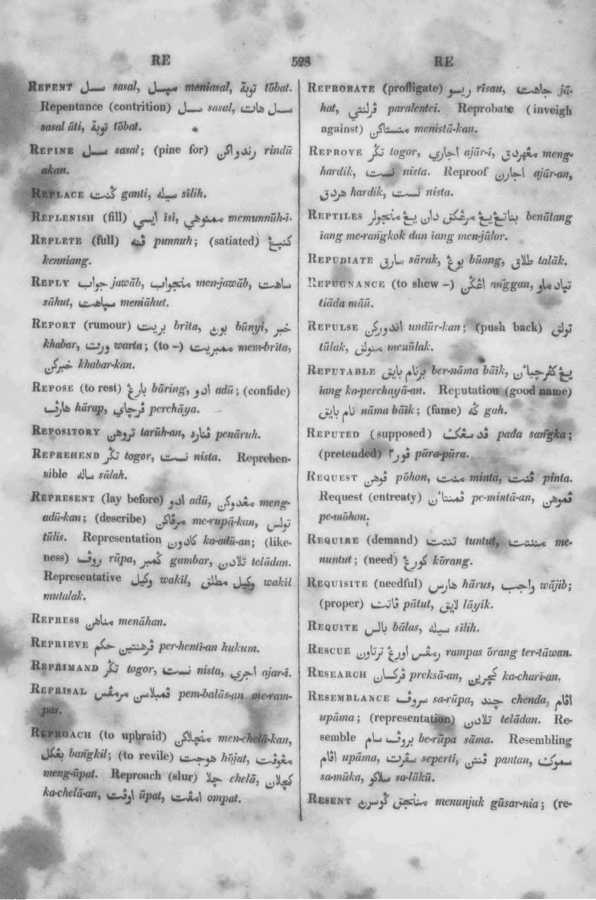 RE 528 RE
REPENT سسل sasal, مپسل meniasal, توبة tōbat.
Repentance (contrition) سسل sasal, سسل هات
sasal āti, توبة tōbat.
REPINE سسل sasal; (pine for) رندواکن rindū
akan.
REPLACE گنت ganti, سيله sīlih.
REPLENISH (fill) ايسي īsi, ممنوهي memunnūh-ī.
REPLETE (full) punnuh; (satiated)
kenniang.
REPLY جواب jawāb, منجواب men-jawāb, ساهت
sāhut, meniāhut.
REPORT (rumour) بريت brīta, بوڽي būnyi, خبر
khabar, ورت warta; (to –) ممبريت mem-brīta,
خبرکن khabar-kan.
REPOSE (to rest) باريڠ bāring, ادو adū; (confide)
هارف hārap, فرچاي perchāya.
REPOSITORY تروهن tarūh-an, فنارد penāruh.
REPREHEND تگر togor, نست nista. Reprehen-
sible ساله sālah.
REPRESENT (lay before) ادو adū, مڠدوکن meng-
adū-kan; (describe) مروفاکن me-rupā-kan, تولس
tūlis. Representation کادون ka-adū-an; (like-
ness) روف rūpa, گمبر gambar, تلادن telādan.
Representative وکيل wakil, وکيل مطلق wakil
mutalak.
REPRESS مناهن menāhan.
REPRIEVE فرهنتين حکم per-henti-an hukum.
REPRIMAND تگر togor, نست nista, اجري ajar-ī.
REPRISAL فمبلاسن مرمفس pem-balās-an me-ram-
pas.
REPROACH (to upbraid) منچلاکن men-chelā-kan,
بڠکل bangkil; (to revile) هوجت hūjat, مڠوفت
meng-ūpat. Reproach (slur) چلا chelā, کچلان
ka-chelā-an, اوفت ūpat, امفت ompat.
REPROBATE (profligate) ريسو rīsau, جاهت jā-
hat, فرلنتي paralentei. Reprobate (inveigh
against) منستاکن menistā-kan.
REPROVE تگر togor, اجاري ajār-ī, مڠهردق meng-
hardik, نست nista. Reproof اجارن ajār-an,
هردق hardik, نست nista.
REPTILES بناتڠ يڠ مرڠکق دان يڠ منجولر benātang
īang me-rangkok dan īang men-jūlar.
REPUDIATE سارق sārak, بوڠ būang, طلاق talāk.
REPUGNANCE (to shew –) اڠگن anggan, تياد ماو
tiāda māū.
REPULSE اندورکن undūr-kan; (push back) تولق
tūlak, منولق menūlak.
REPUTABLE برنام بايق ber-nāma bāik, يڠ کفرچيان
īang ka-perchayā-an. Reputation (good name)
نام بايق nāma bāik; (fame) گه gah.
REPUTED (supposed) فد سڠک pada sangka;
(pretended) pūra-pūra.
REQUEST فوهن pōhon, منت minta, فنت pinta.
Request (entreaty) فمنتان pe-mintā-an, فموهن
pe-mōhon.
REQUIRE (demand) تنتت tuntut, مننتت me-
nuntut; (need) کورڠ kōrang.
REQUISITE (needful) هارس hārus, واجب wājib;
(proper) فاتت pātut, لايق lāyik.
REQUITE بالس bālas, سيله sīlih.
RESCUE رمفس اورڠ ترتاون rampas ōrang ter-tāwan.
RESEARCH فرکسان preksā-an, کچرين ka-chari-an.
RESEMBLANCE سروف sa-rūpa, چند chenda, افام
upāma; (representation) تلادن telādan. Re-
semble بروف سام be-rūpa sāma. Resembling
افام upāma, سفرت seperti, فنتن pantan, سموک
sa-mūka, سلاکو sa-lākū.
RESENT مننجق گوسرن menunjuk gūsar-nia; (re-